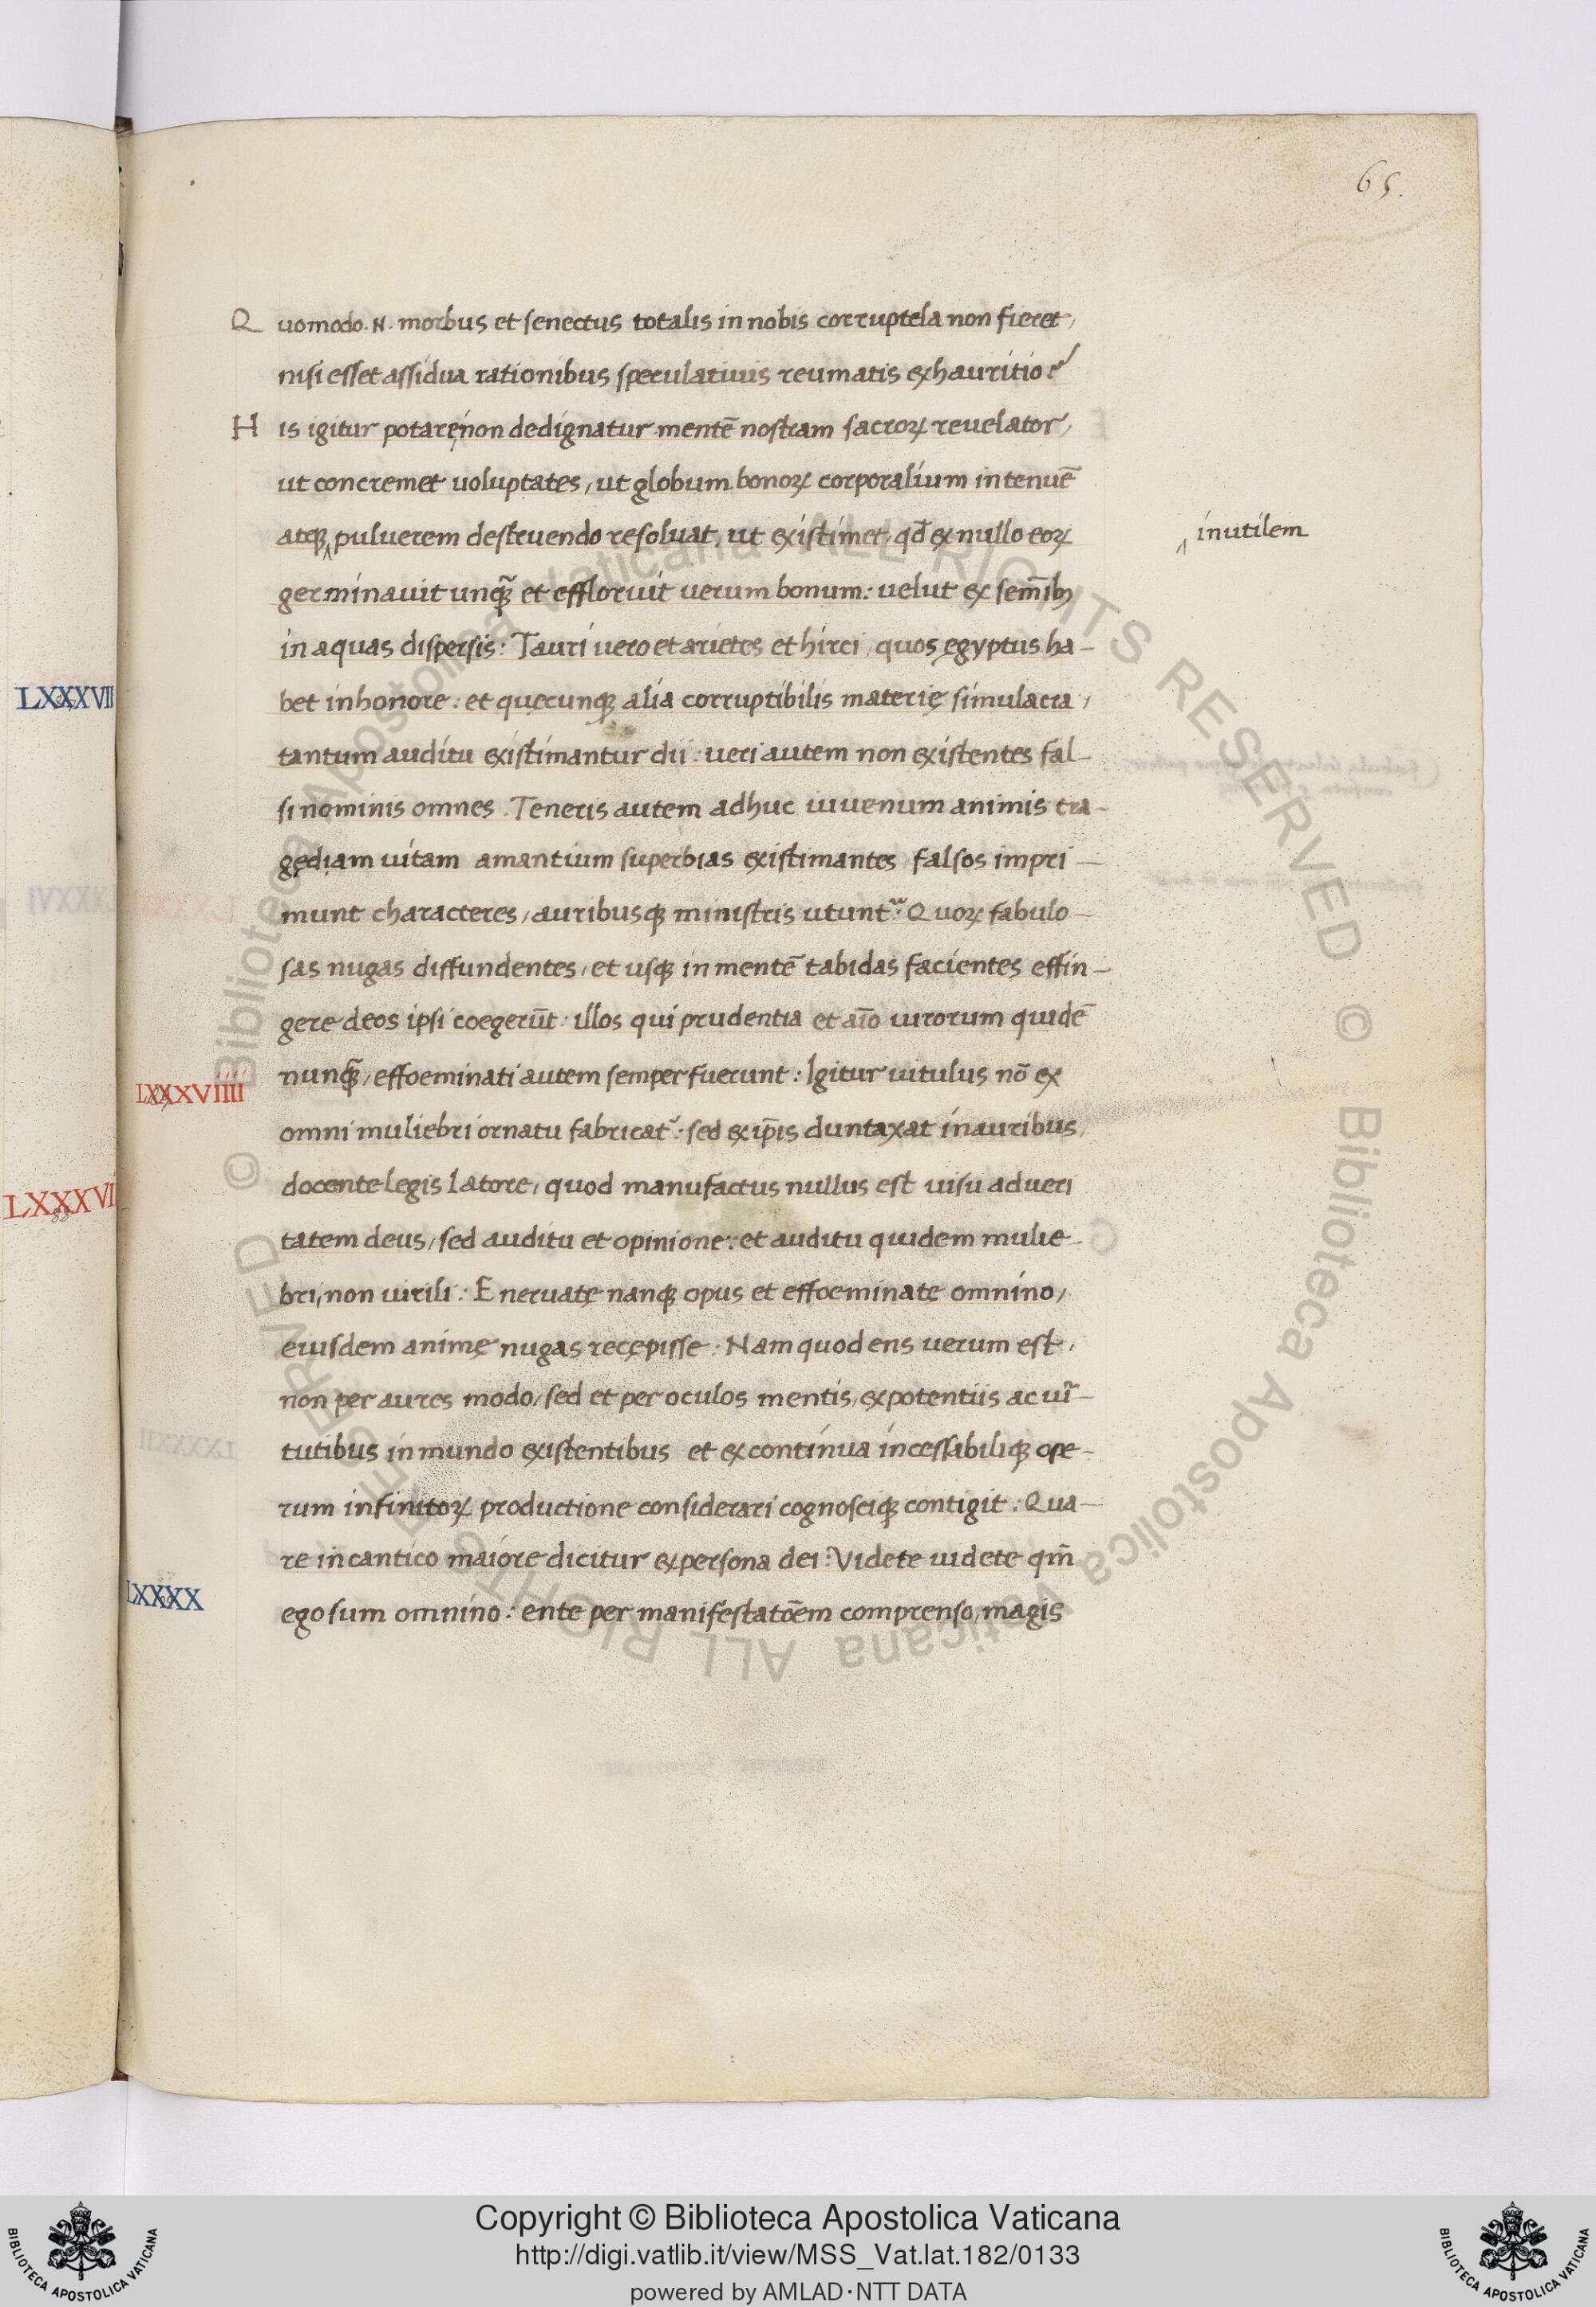 65.
Quomodo .N. morbus et senectus totalis in nobis corruptela non fieret,
nisi esset assidua rationibus speculatiuis reumatis exhauritio?
His igitur potare, non dedignatur mentē nostram sacroꝝ reuelator,
ut concremet uoluptates, ut globum bonoꝝ corporalium in tenuē
atqꝫ ‸ puluerem destruendo resoluat, ut existimet, qđ ex nullo eoꝝ
‸ inutilem
germinauit unqꝫ̃ et effloruit uerum bonum: uelut ex sem̄ibꝫ
in aquas dispersis: Tauri uero et arietes et hirci, quos ęgyptus ha-
LXXXVII
bet in honore: et quęcunqꝫ alia corruptibilis materię simulacra,
tantum auditu existimantur dii: ueri autem non existentes fal-
si nominis omnes. Teneris autem adhuc iuuenum animis tra-
gędiam uitam amantium superbias existimantes falsos impri-
munt characteres, auribusqꝫ ministris utuntᷣ: Quoꝝ fabulo-
sas nugas diffundentes, et usqꝫ in mentē tabidas facientes effin-
gere deos ipsi coegerūt: illos qui prudentia et aīo uirorum quidē
nunqꝫ̃, effoeminati autem semper fuerunt: Igitur uitulus nō ex
LXXXVIIII
omni muliebri ornatu fabricatᷣ: sed ex ip̄is duntaxat inauribus,
docente legis latore, quod manufactus nullus est uisu ad ueri
LXXXVI
88
tatem deus, sed auditu et opinione: et auditu quidem mulie-
bri, non uirili: Eneruatę nanqꝫ opus et effoeminatę omnino,
eiusdem animę nugas recępisse: Nam quod ens uerum est,
non per aures modo, sed et per oculos mentis, ex potentiis ac uir̃-
tutibus in mundo existentibus et ex continua incessabiliqꝫ ope-
rum infinitoꝝ productione considerari cognosciqꝫ contigit: Qua-
re in cantico maiore dicitur ex persona dei: Videte uidete qm̄
LXXXX
ego sum omnino: ente per manifestatōem comprenso, magis
© Biblioteca Apostolica Vaticana ALL RIGHTS RESERVED © Biblioteca Apostolica Vaticana ALL RIGHTS RESERVED
Copyright © Biblioteca Apostolica Vaticana
http://digi.vatlib.it/view/MSS_Vat.lat.182/0133
powered by AMLAD·NTT DATA
BIBLIOTECA APOSTOLICA VATICANA
BIBLIOTECA APOSTOLICA VATICANA